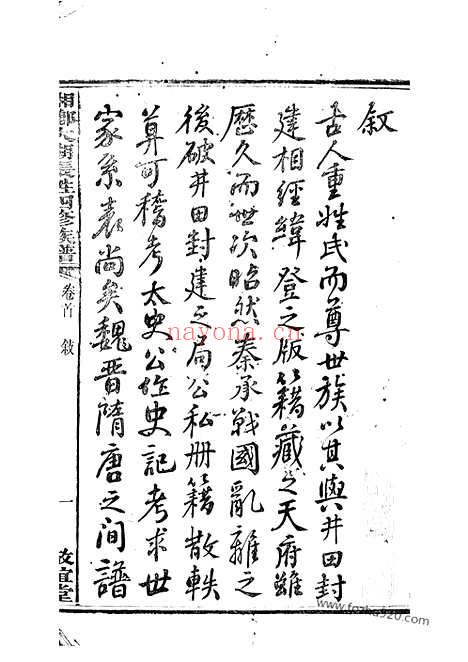 敘
古人重姓氏而尊世族以其與井田封
建相經緯登之版籍藏之天府雖
歷久而世次昭然秦承戰國亂離之
後破井田封建之局公私册籍散軼
莫可稽考太史公作史記考求世
家系表尚矣魏晋隋唐之间譜
姓四修族譜
卷首
敘
一
敦誼堂
nayona.cn
www.fozhu920.com